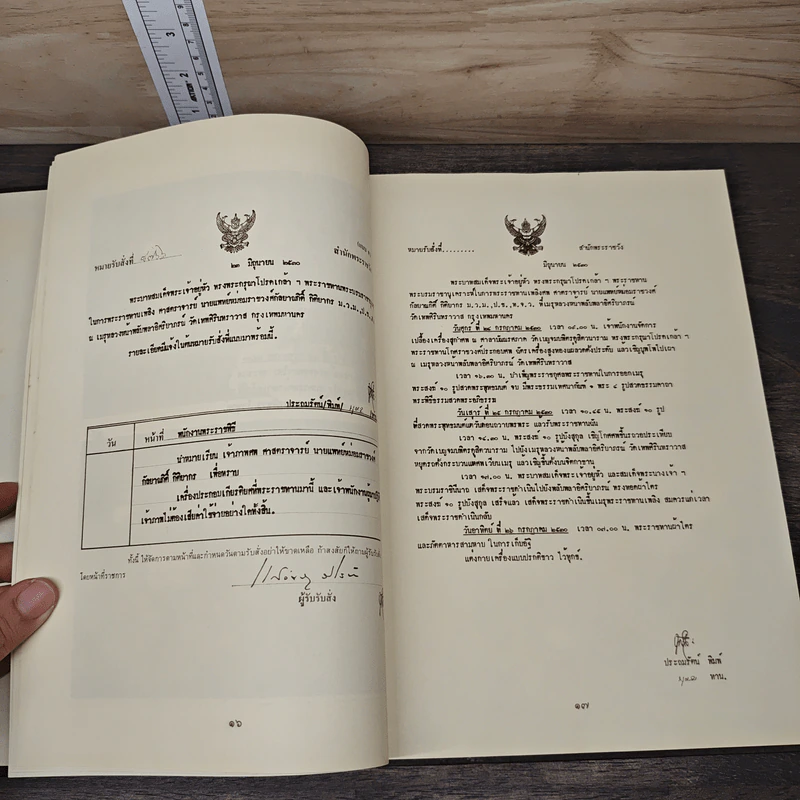 หมายรับสั่งที่
สำนักพระราชวัง
๒๓ มิถุนายน ๒๕๓๐
พระบาทสมเด็จพระเจ้าอยู่หัว ทรงพระกรุณาโปรดเกล้า ฯ พระราชทาน
ในการพระราชทานเพลิงศพ ศาสตราจารย์ นายแพทย์หม่อมราชวงศ์กัลยาณกิติ์ กิติยากร ม.ว.ม.,ป.ช.,
ณ เมรุหลวงหน้าพลับพลาอิศริยาภรณ์ วัดเทพศิรินทราวาส กรุงเทพมหานคร
รายละเอียดมีแจ้งในต้นหมายรับสั่งที่แนบมาพร้อมนี้.
ประถมรัตน์/พิมพ์/
วัน หน้าที่ พนักงานพระราชพิธี
นำหมายเรียน เจ้าภาพศพ ศาสตราจารย์ นายแพทย์หม่อมราชวงศ์
กัลยาณกิติ์ กิติยากร เพื่อทราบ
เครื่องประกอบเกียรติยศที่พระราชทานมานี้ และเจ้าพนักงานผู้มาปฏิบัติ
เจ้าภาพไม่ต้องเสียค่าใช้จ่ายอย่างใดทั้งสิ้น.
ทั้งนี้ ให้จัดการตามหน้าที่และกำหนดวันตามรับสั่งอย่าให้ขาดเหลือ ถ้าสงสัยก็ให้ถามผู้รับรับสั่ง
โดยหน้าที่ราชการ
ผู้รับรับสั่ง
๑๖
หมายรับสั่งที่.........
สำนักพระราชวัง
มิถุนายน ๒๕๓๐
พระบาทสมเด็จพระเจ้าอยู่หัว ทรงพระกรุณาโปรดเกล้า ฯ พระราชทาน
พระบรมราชานุเคราะห์ในการพระราชทานเพลิงศพ ศาสตราจารย์ นายแพทย์หม่อมราชวงศ์
กัลยาณกิติ์ กิติยากร ม.ว.ม.,ป.ช.,ท.จ.ว. ที่เมรุหลวงหน้าพลับพลาอิศริยาภรณ์
วัดเทพศิรินทราวาส กรุงเทพมหานคร
วันศุกร์ ที่ ๒๔ กรกฎาคม ๒๕๓๐ เวลา ๐๙.๐๐ น. เจ้าพนักงานจัดการ
เปลื้องเครื่องสุกำศพ ณ ศาลาบัณณรศภาค วัดเบญจมบพิตรดุสิตวนาราม ทรงพระกรุณาโปรดเกล้า ฯ
พระราชทานโกศราชวงศ์ประกอบศพ ฉัตรเครื่องสูงทองแผ่ลวดตั้งประดับ แล้วเชิญบุพโพไปเผา
ณ เมรุหลวงหน้าพลับพลาอิศริยาภรณ์ วัดเทพศิรินทราวาส
เวลา ๑๖.๓๐ น. บำเพ็ญพระราชกุศลพระราชทานในการออกเมรุ
พระสงฆ์ ๑๐ รูปสวดพระพุทธมนต์ จบ มีพระธรรมเทศนากัณฑ์ ๑ พระ ๔ รูปสวดธรรมคาถา
พระพิธีธรรมสวดพระอภิธรรม
วันเสาร์ ที่ ๒๕ กรกฎาคม ๒๕๓๐ เวลา ๑๐.๔๕ น. พระสงฆ์ ๑๐ รูป
ที่สวดพระพุทธมนต์แต่วันก่อนถวายพรพระ แล้วรับพระราชทานฉัน
เวลา ๑๔.๓๐ น. พระสงฆ์ ๑๐ รูปบังสุกุล เชิญโกศศพขึ้นรถวอประเทียบ
จากวัดเบญจมบพิตรดุสิตวนาราม ไปยังเมรุหลวงหน้าพลับพลาอิศริยาภรณ์ วัดเทพศิรินทราวาส
หยุดรถตั้งกระบวนแห่ศพเวียนเมรุ แล้วเชิญขึ้นตั้งบนจิตกาธาน
เวลา ๑๗.๐๐ น. พระบาทสมเด็จพระเจ้าอยู่หัว และสมเด็จพระนางเจ้า ฯ
พระบรมราชินีนาถ เสด็จพระราชดำเนินไปยังพลับพลาอิศริยาภรณ์ ทรงทอดผ้าไตร
พระสงฆ์ ๑๐ รูปบังสุกุล เสร็จแล้ว เสด็จพระราชดำเนินขึ้นเมรุพระราชทานเพลิง สมควรแก่เวลา
เสด็จพระราชดำเนินกลับ
วันอาทิตย์ ที่ ๒๖ กรกฎาคม ๒๕๓๐ เวลา ๐๗.๐๐ น. พระราชทานผ้าไตร
และภัตตาหารสามหาบ ในการเก็บอัฐิ
แต่งกายเครื่องแบบปรกติขาว ไว้ทุกข์.
ประถมรัตน์ พิมพ์
ทาน.
๑๗